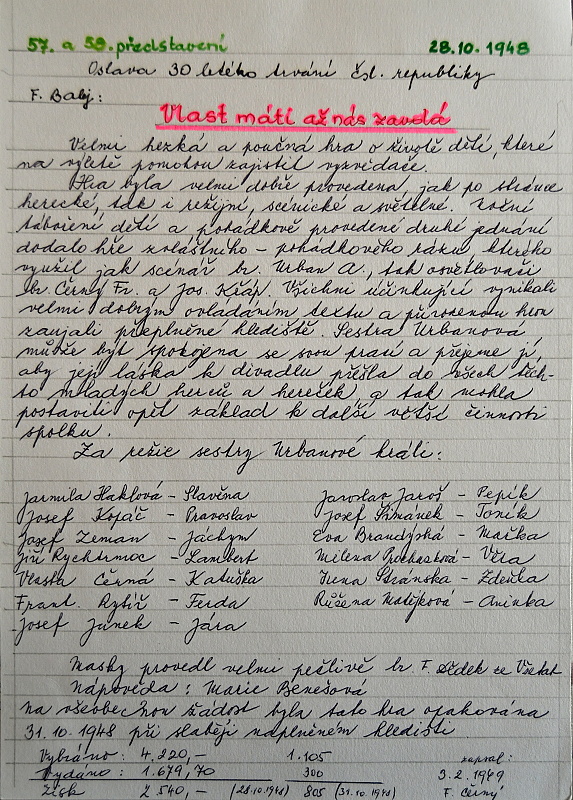 57. a 58. představení 28.10.1948
Oslava 30 letého trvání čsl. republiky
F. Balej:
Vlast máti až nás zavolá
Velmi hezká a poučná hra o životě dětí, které
na výletě pomohou zajistit vyzvědače.
Hra byla velmi dobře provedena, jak po stránce
herecké, tak i režijní, scénické a světelné. Noční
táboření dětí a pohádkově provedené druhé jednání
dodalo hře zvláštního - pohádkového rázu, kterého
využil jak scénář br. Urban A., tak osvětlovači
br. Černý Fr. a Jos. Křáp. Všichni účinkující vynikali
velmi dobrým ovládáním textu a přirozenou hrou
zaujali přeplněné hlediště. Sestra Urbanová
může být spokojena se svou prací a přejeme jí,
aby její láska k divadlu přešla do všech těch-
to mladých herců a hereček a tak mohla
postaviti opět základ k další větší činnosti
spolku.
Za režie sestry Urbanové hráli:
Jarmila Haklová - Slavěna Jaroslav Jaroš - Pepík
Josef Kopáč - Pravoslav Josef Šimánek - Toník
Josef Zeman - Jáchym Eva Brandýská - Mařka
Jiří Rychtrmoc - Lambert Milena Procházková - Věra
Vlasta Černá - Katuška Irena Stránská - Zdeňka
Frant. Rytíř - Ferda Růžena Matějková - Aninka
Josef Junek - Jára
Masky provedl velmi pečlivě br. F. Dědek ze Všetat
Nápověda: Marie Benešová
na všeobecnou žádost byla tato hra opakována
31.10.1948 při slaběji naplněném hledišti
Vybráno: 4.220,- 1.105 zapsal:
Vydáno: 1.679,70 300 3.2.1949
Zisk 2.540,- (28.10.1948) 805 (31.10.1948) F. Černý